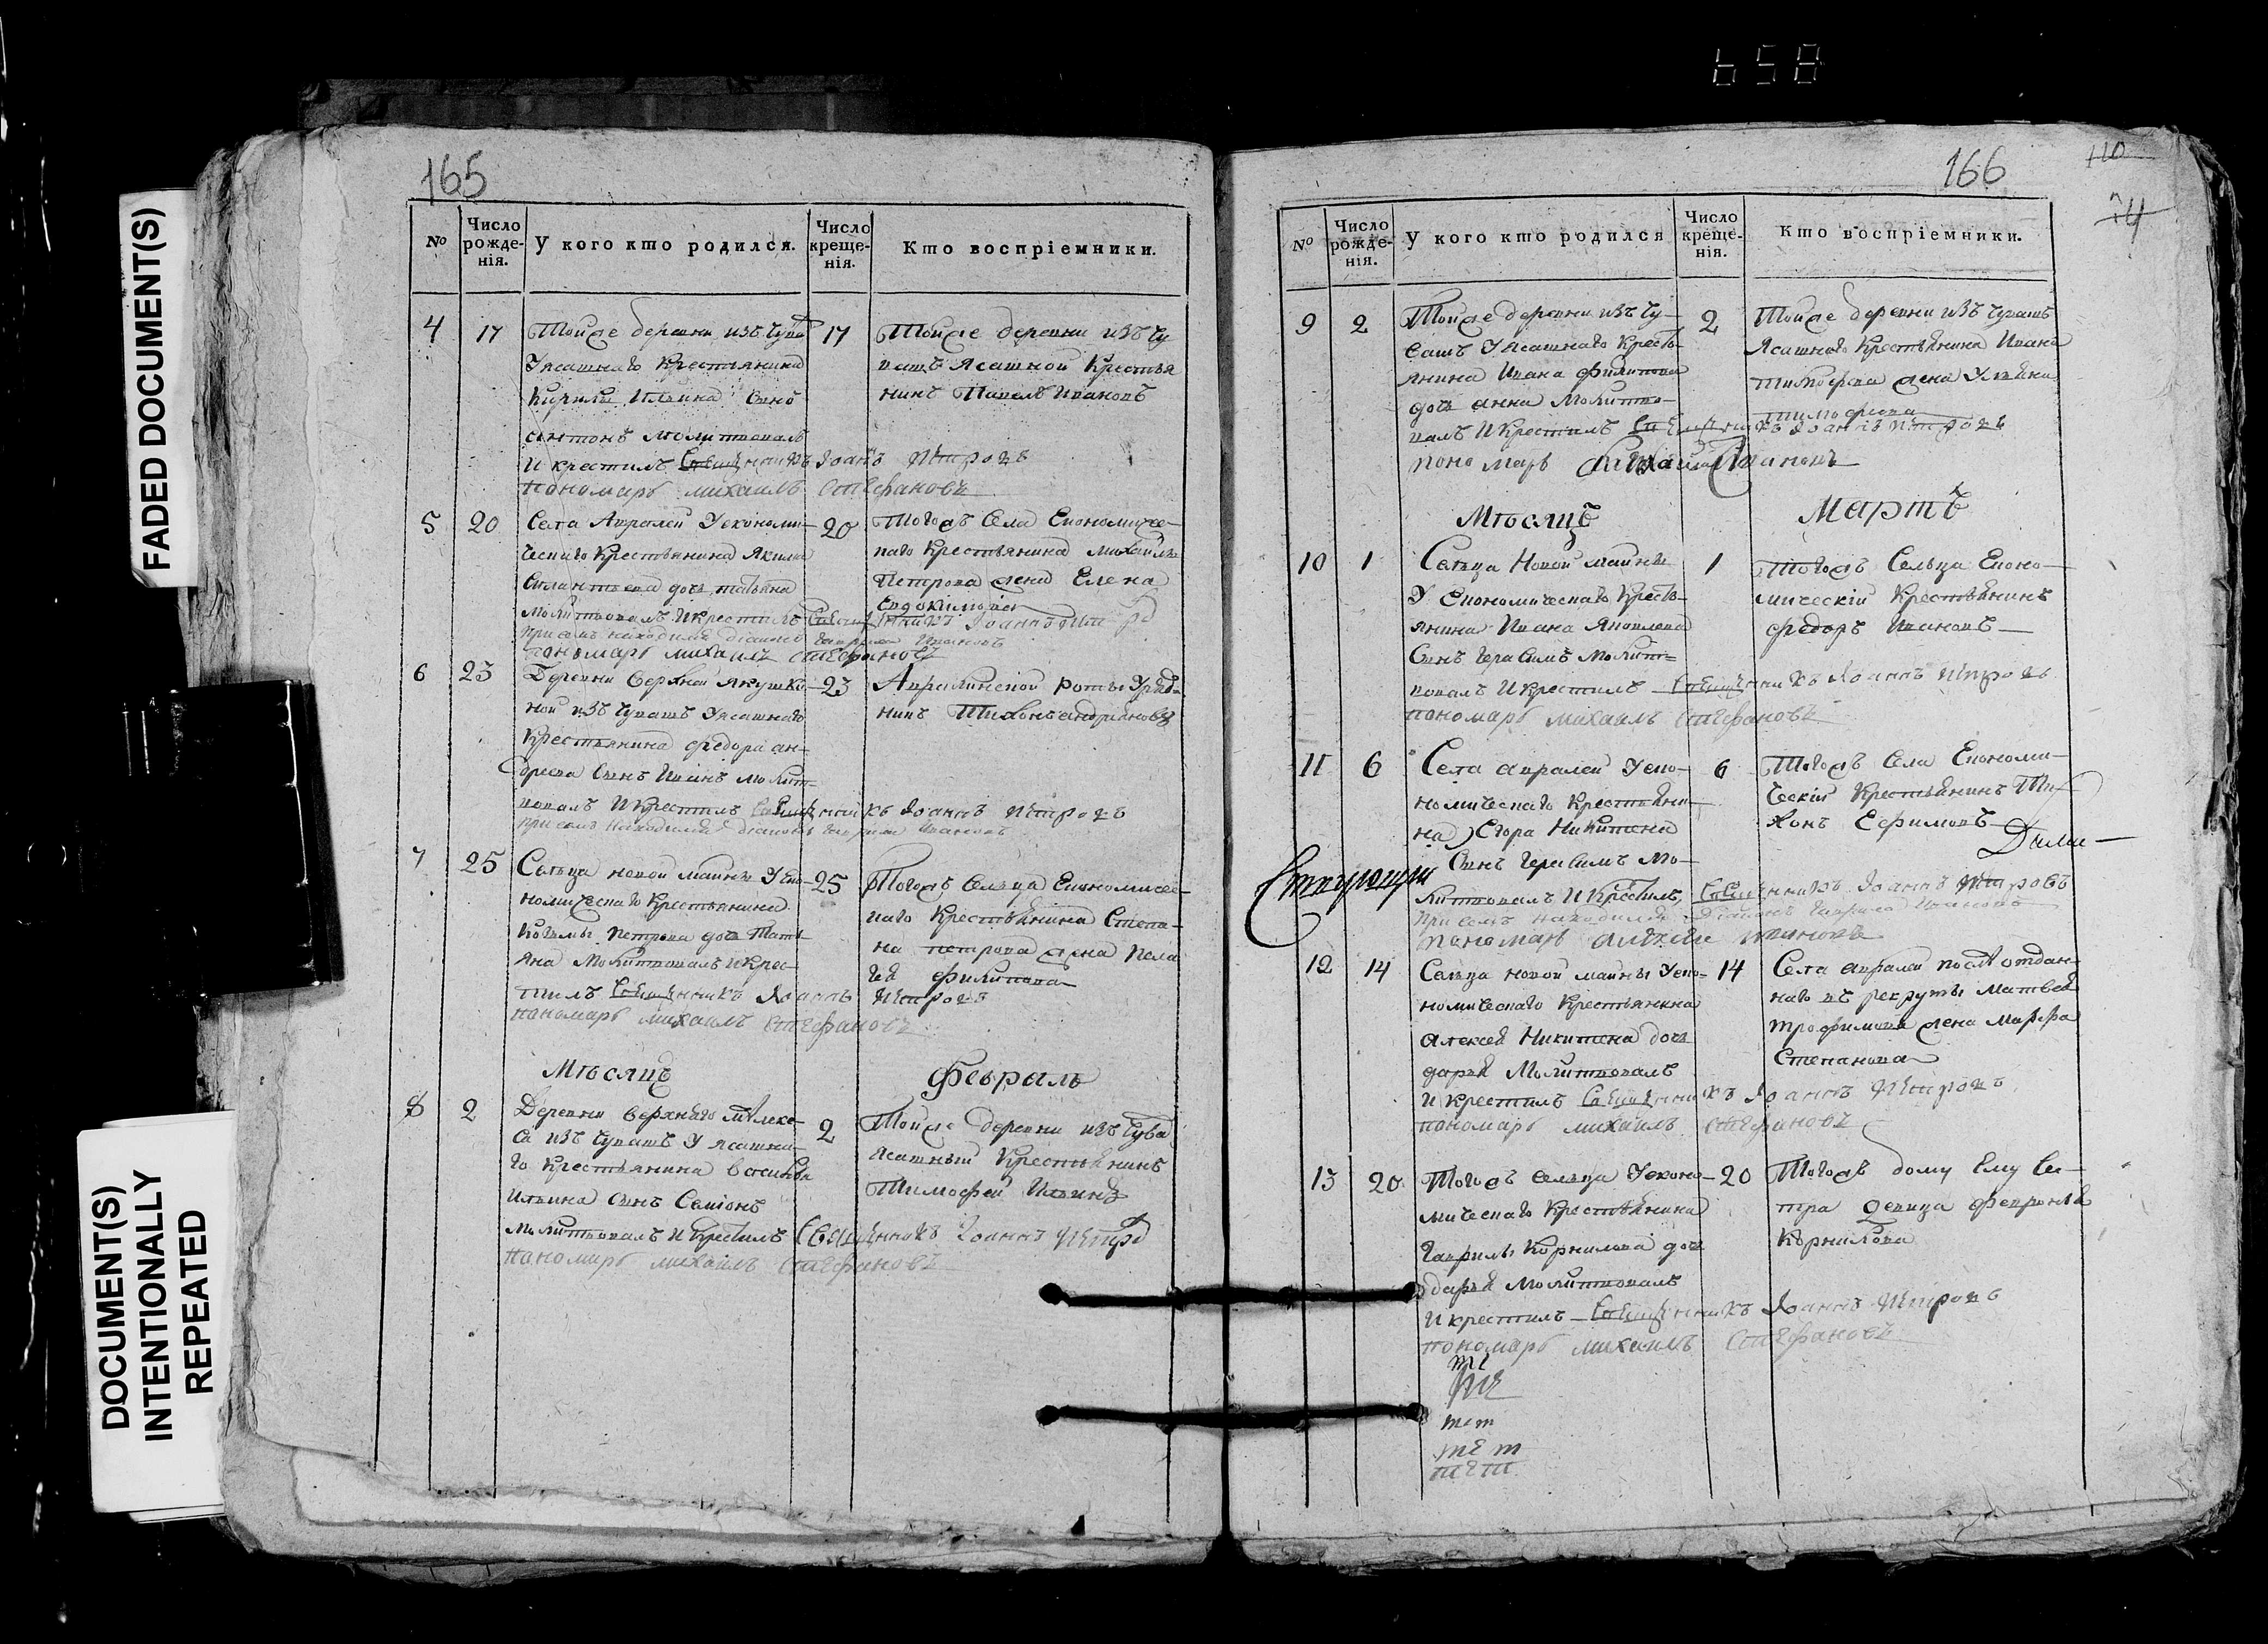 658
FADED DOCUMENT(S)
DOCUMENT(S)
INTENTIONALLY
REPEATED
165
№
Число рожде-нія.
У кого кто родился.
Число креще-нія.
Кто воспріемники.
4 17
Тойже деревни изъ Чува
Уясашнаго Крестьянина
Кирилы Ильина Сынъ
антонъ молитвовалъ
И крестилъ Священникъ Іоаннъ Петровъ
пономарь михаилъ Стефановъ
17
Тойже деревни изъ Чу
вашъ Ясашной Крестья
нинъ Павелъ Ивановъ
5 20
Села Авралей Уекономи-
ческаго Крестьянина
дочь татьяна
молитвовалъ Икрестилъ Священникъ Іоаннъ Петро
при семъ находился діаконъ Гаврила Ивановъ
пономарь михаилъ стефановъ
20
Тогожъ Села Економиче-
скаго Крестьянина Михайла
Петрова жена Елена
Евдокимова
6 23
Деревни Верхней Якушки-
ной изъ Чувашъ Уясашнаго
Крестьянина федора ан-
дреева Сынъ Иванъ молит-
вовалъ Икрестилъ Священникъ Іоаннъ Петровъ
при семъ находился діаконъ Гаврила Ивановъ
23
Авралинской роты Уряд-
никъ Тихонъ андреяновъ
7 25
Сельца новой майны Уеко-
номическаго Крестьянина
Козьмы Петрова дочь Тать-
яна Молитвовалъ Икрес-
тилъ Священникъ Іоаннъ Петровъ
пономарь михаилъ стефановъ
25
Тогожъ Сельца Економиче-
скаго Крестьянина Степа-
на петрова жена Пела
гея филипова
Мѣсяцъ Февраль
8 2
Деревни верхняго Мелеке-
са изъ Чувашъ Уясашна-
го Крестьянина Василья
Ильина Сынъ Семіонъ
молитвовалъ Икрестилъ Священникъ Іоаннъ Петро
пономарь михаилъ Стефановъ
2
Тойже деревни изъ Чува
Ясашный Крестьянинъ
Тимофей Ильинъ
166
110
№
Число рожде-нія.
У кого кто родился
Число креще-нія.
Кто воспріемники.
9 2
Тойже деревни изъ Чу-
вашъ Уясашнаго Кресть-
янина Ивана филипова
дочь анна Молитво-
валъ Икрестилъ Священникъ Іоаннъ Петровъ
пономарь Ивановъ
2
Тойже деревни изъ Чувашъ
Ясашнаго Крестьянина Ивана
Тимофеева жена Ульяна
тимофеева
Мѣсяцъ Мартъ
10 1
Сельца Новой майны
У Економическаго Кресть-
янина Ивана Яковлева
Сынъ Герасимъ Молит-
вовалъ Икрестилъ Священникъ Іоаннъ Петровъ
пономарь михаилъ Стефановъ
1
Тогожъ Сельца Еконо-
мическій Крестьянинъ
федоръ Ивановъ
11 6
Села авралей Уеко-
номическаго Крестьяни-
на Егора Никитина
Сынъ Герасимъ Мо-
литвовалъ Икрестилъ Священникъ Іоаннъ Петровъ
При семъ находился діаконъ Гаврила Ивановъ
пономарь алексѣй ивановъ
6
Тогожъ Села Економи-
ческій Крестьянинъ Ти-
хонъ Ефимовъ
12 14
Сельца новой майны Уеко-
номическаго Крестьянина
алексея Никитина дочь
дарья Молитвовалъ
И крестилъ Священникъ Іоаннъ Петровъ
пономарь михаилъ стефановъ
14
Села авралей послѣ отдан-
наго въ рекруты Матвея
трофимова жена Марфа
Степанова
13 20
Тогожъ сельца Уеконо-
мическаго Крестьянина
Гаврилы Корнилова дочь
дарья Молитвовалъ
И крестилъ Священникъ Іоаннъ Петровъ
пономарь михаилъ Стефановъ
20
Тогожъ дому Ему Се-
стра девица февронья
Корнилова